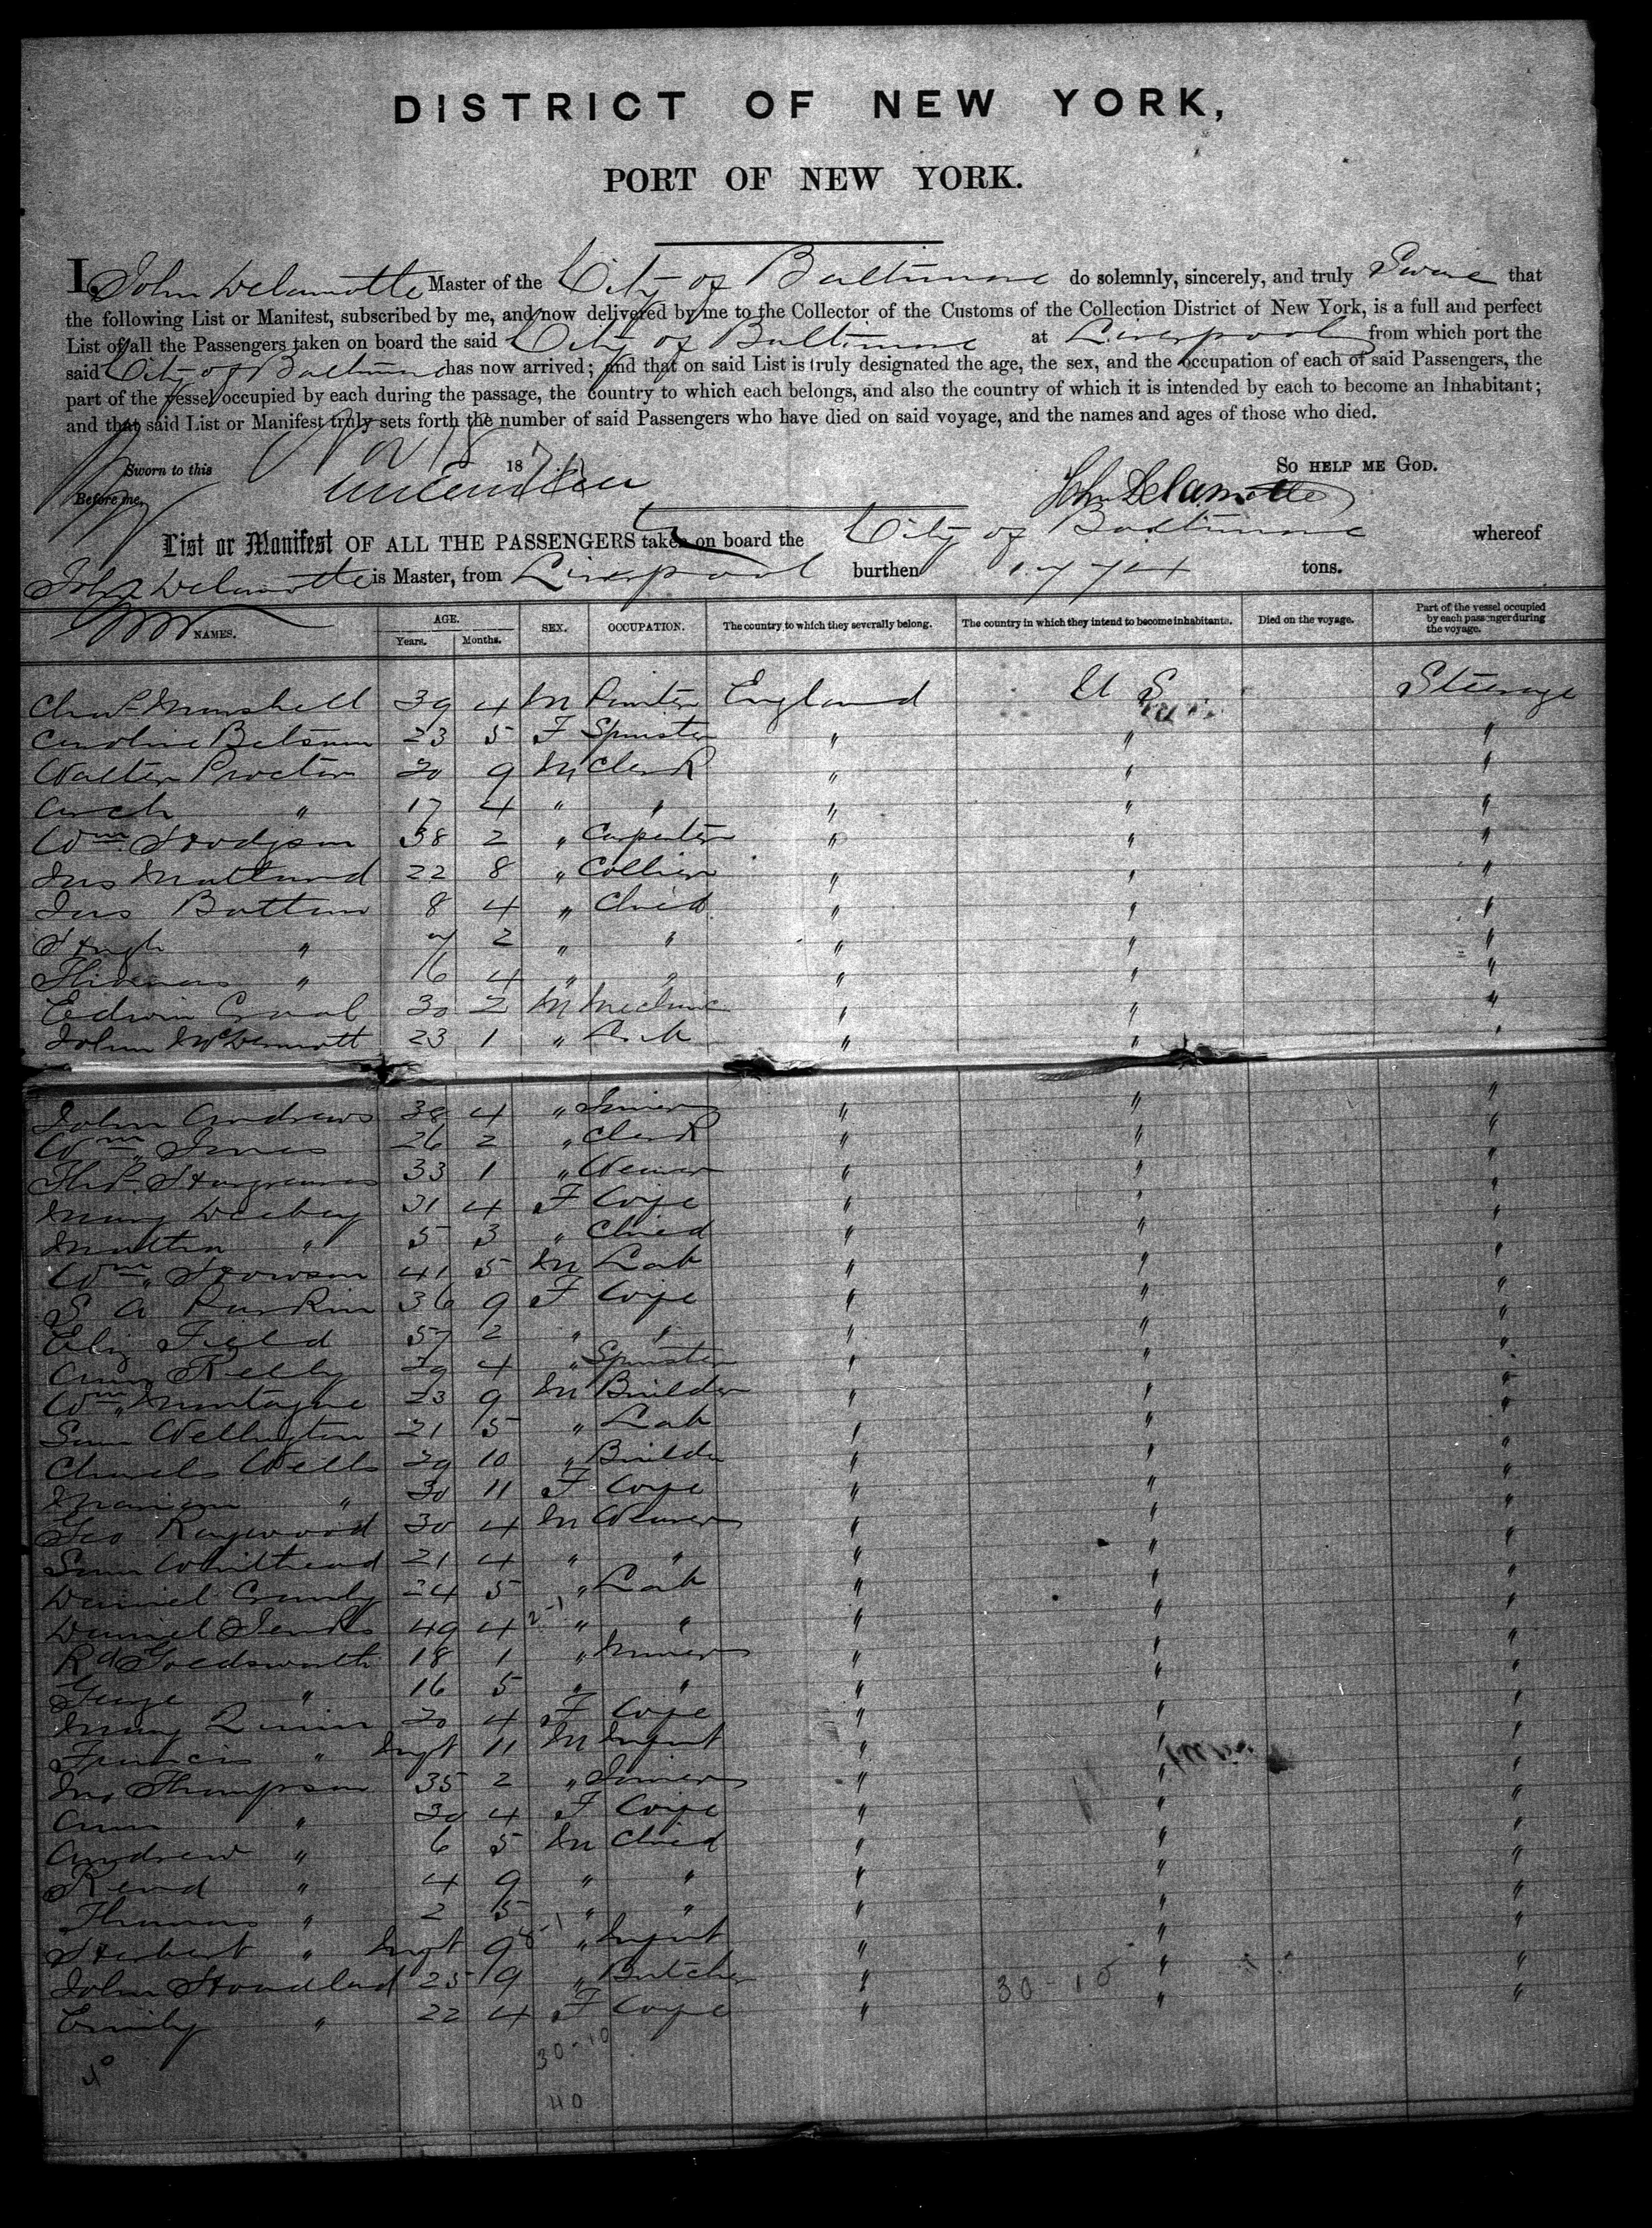 DISTRICT OF NEW YORK,
PORT OF NEW YORK.
I, John Delamotte Master of the City of Baltimore do solemnly, sincerely, and truly Swear that
the following List or Manifest, subscribed by me, and now delivered by me to the Collector of the Customs of the Collection District of New York, is a full and perfect
List of all the Passengers taken on board the said City of Baltimore at Liverpool from which port the
said City of Baltimore has now arrived; and that on said List is truly designated the age, the sex, and the occupation of each of said Passengers, the
part of the vessel occupied by each during the passage, the country to which each belongs, and also the country of which it is intended by each to become an Inhabitant;
and that said List or Manifest truly sets forth the number of said Passengers who have died on said voyage, and the names and ages of those who died.
Sworn to this Nov 18 187 SO HELP ME GOD.
Before me, John Delamotte
List or Manifest OF ALL THE PASSENGERS taken on board the City of Baltimore whereof
John Delamotte is Master, from Liverpool burthen 1774 tons.
NAMES. AGE. Years. Months. SEX. OCCUPATION. The country to which they severally belong. The country in which they intend to become inhabitants. Died on the voyage. Part of the vessel occupied by each passenger during the voyage.
Chas Marshall 39 4 M Painter England U S Steerage
Caroline 23 5 F Spinster " " "
Walter Procter 20 9 M Clerk " " "
Arch " 17 4 " " " " "
Wm Hodgson 38 2 " Carpenter " " "
Jas Maitland 22 8 " Collier " " "
Jas 8 4 " Child " " "
Hugh " 7 2 " " " " "
" 16 4 " " " " "
Edwin 30 2 M Mechanic " " "
John McDermott 23 1 " " " "
John Andrews 38 4 " Joiner " " "
Wm 26 2 " Clerk " " "
Thos Hargreaves 33 1 " Weaver " " "
Mary 31 4 F Wife " " "
Martha " 5 3 " Child " " "
Wm 41 5 M Lab " " "
S A 36 9 F Wife " " "
Eliz Field 57 2 " " " " "
Ann Kelly 29 4 " Spinster " " "
Wm Montague 23 9 M Builder " " "
Sam Wellington 21 5 " Lab " " "
Charles Wells 29 10 " Builder " " "
" 30 11 F Wife " " "
Geo Raywood 30 4 M Weaver " " "
Sam Whithead 21 4 " " " " "
Daniel 24 5 " Lab " " "
Daniel 49 4 2-1 " " " " "
Rd Goldsworth 18 1 " Miner " " "
George " 16 5 " " " " "
Mary Quinn 20 4 F Wife " " "
Francis " Inft 11 M Infant " " "
Jno Thompson 35 2 " Joiner " " "
Ann " 30 4 F Wife " " "
Andrew " 6 5 M Child " " "
" 4 9 " " " " "
Thomas " 2 5 " " " " "
Herbert " Inft 9 8-1 " Infant " " "
John 25 9 " Butcher " 30-10 " "
Emily " 22 4 F Wife " " "
30-10
40